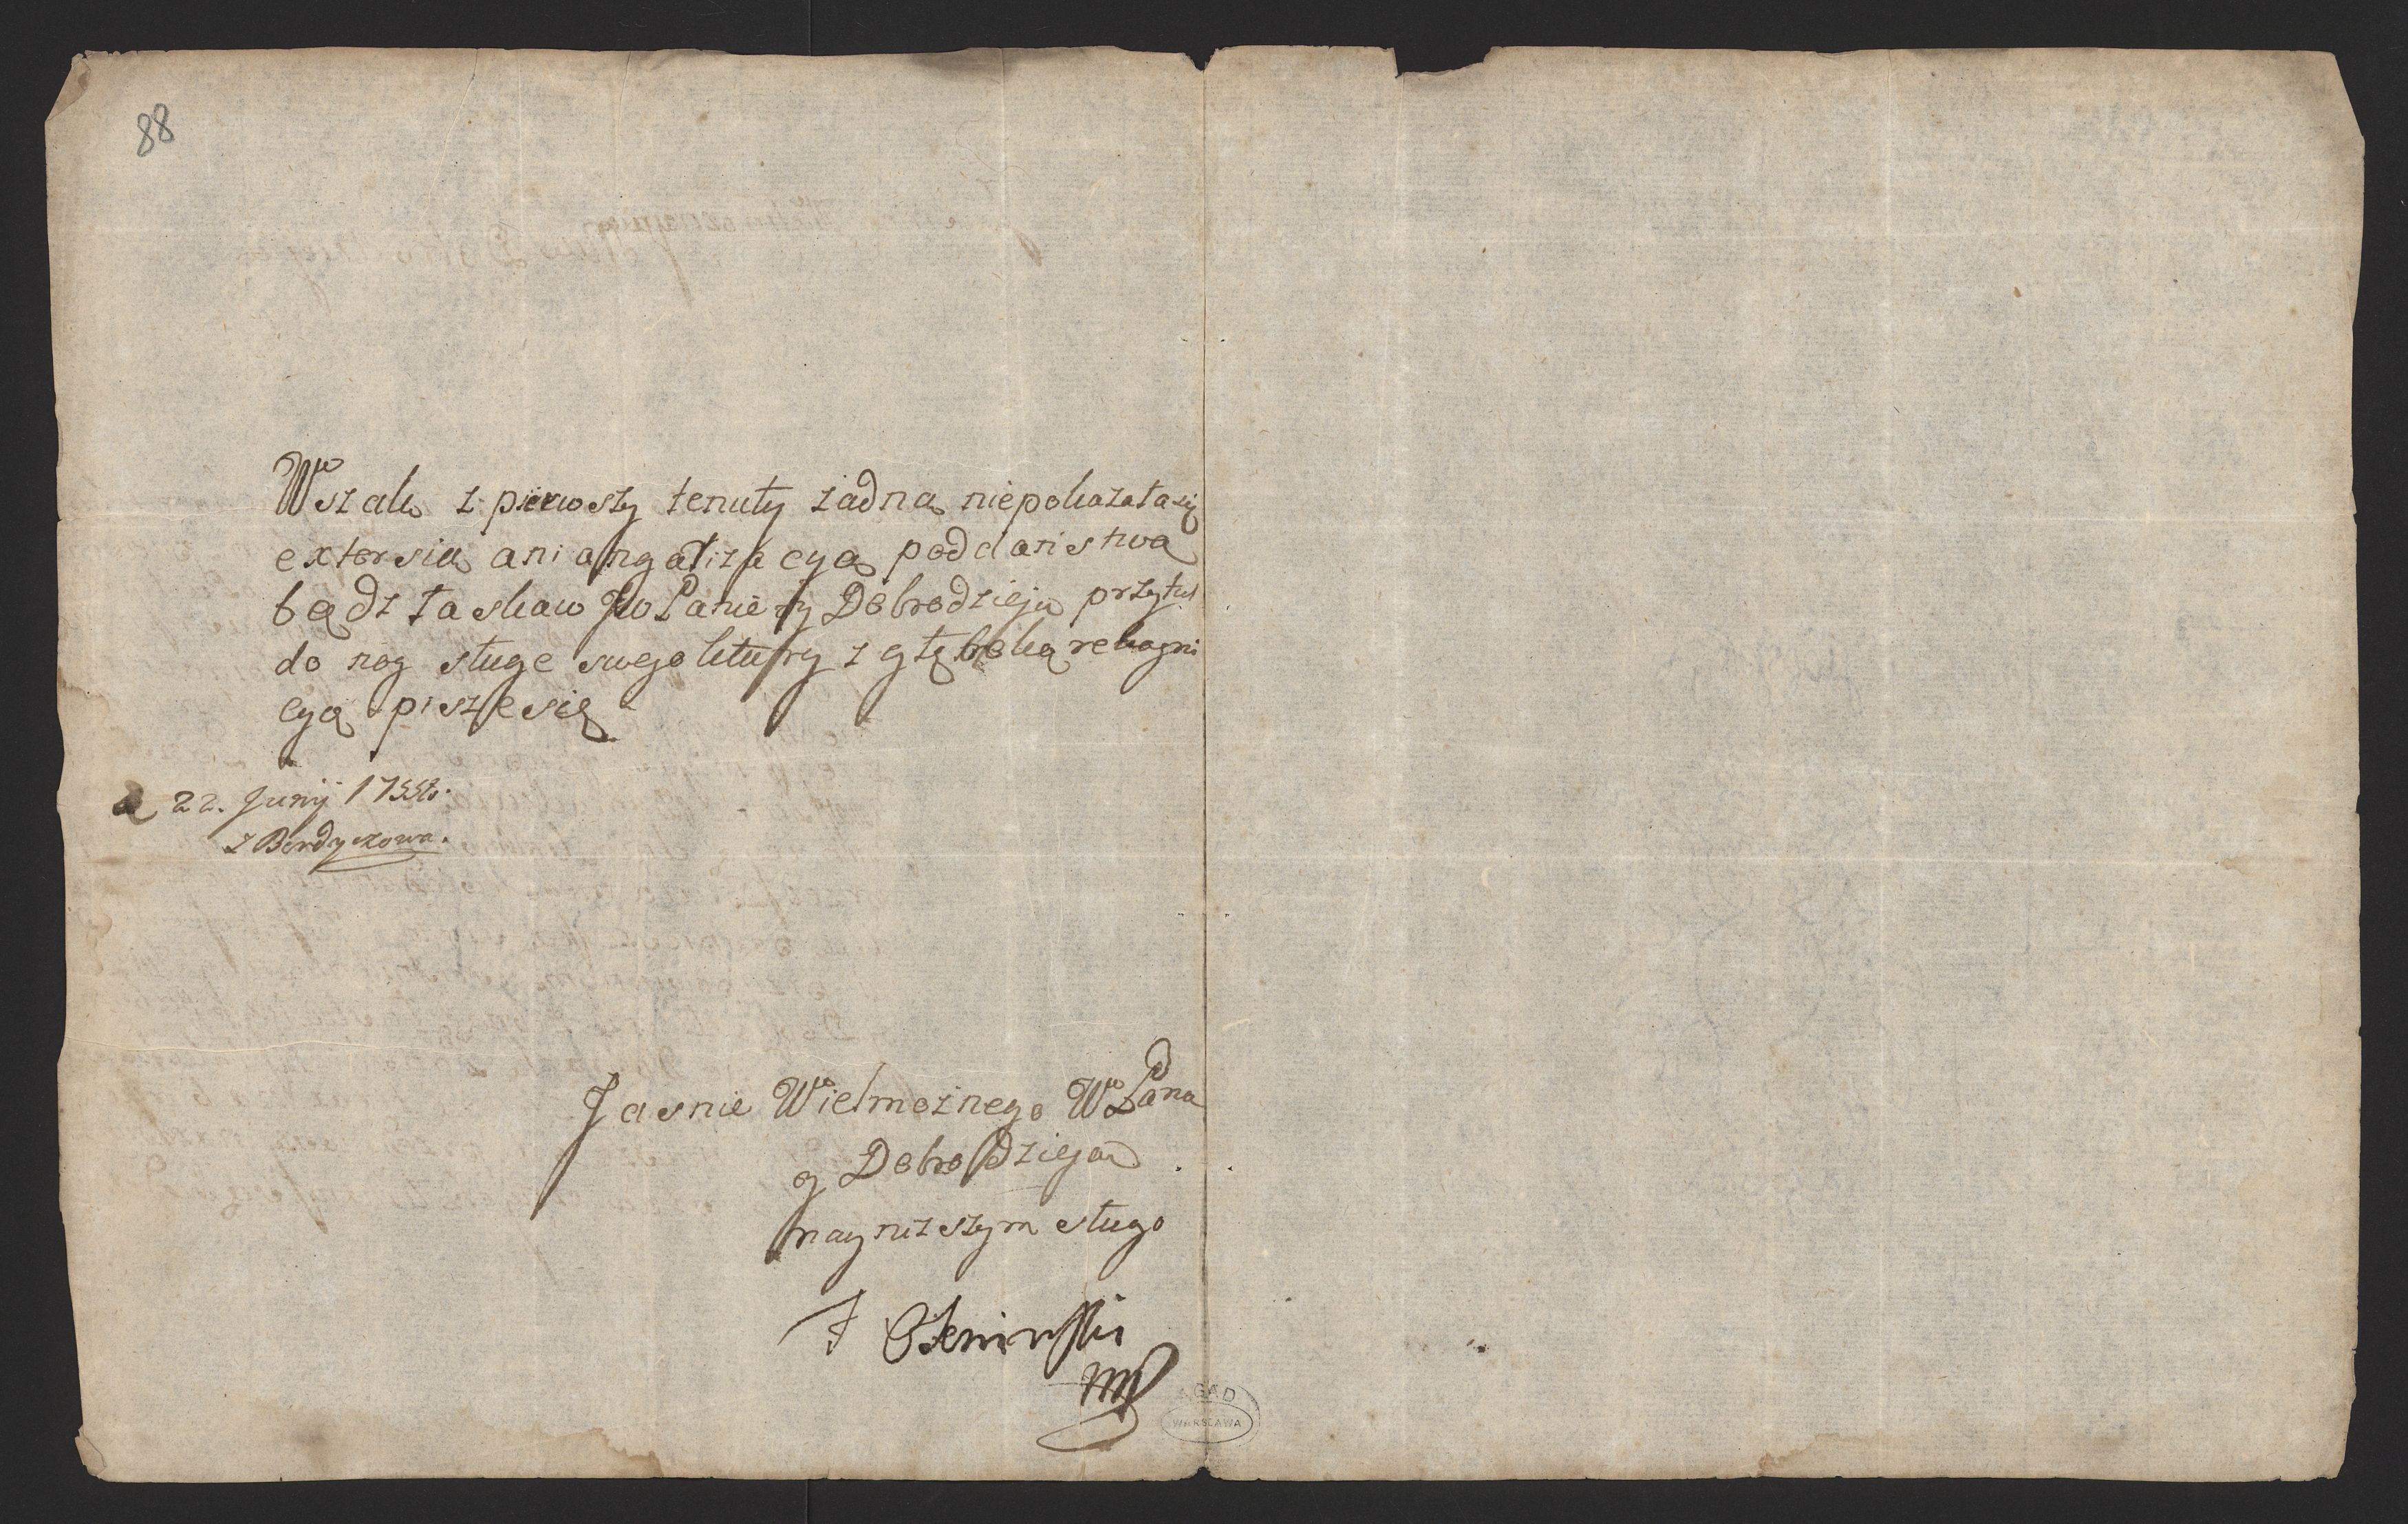 88
Wszak z pierwszy tenuty zadna niepokazała się
extorsia ani angaliza cya poddaństwa
bądz łaskaw JW Panie y Dobrodzieju przytul
do nog sługe swego ktury z głęboką rekogni
cyą pisze się
22. Junij 175
z Berdyczowa.
Jasnie Wielmoznego W Pana
y Dobrodzieja
naynizszym sługo
mp
AGAD
WARSZAWA